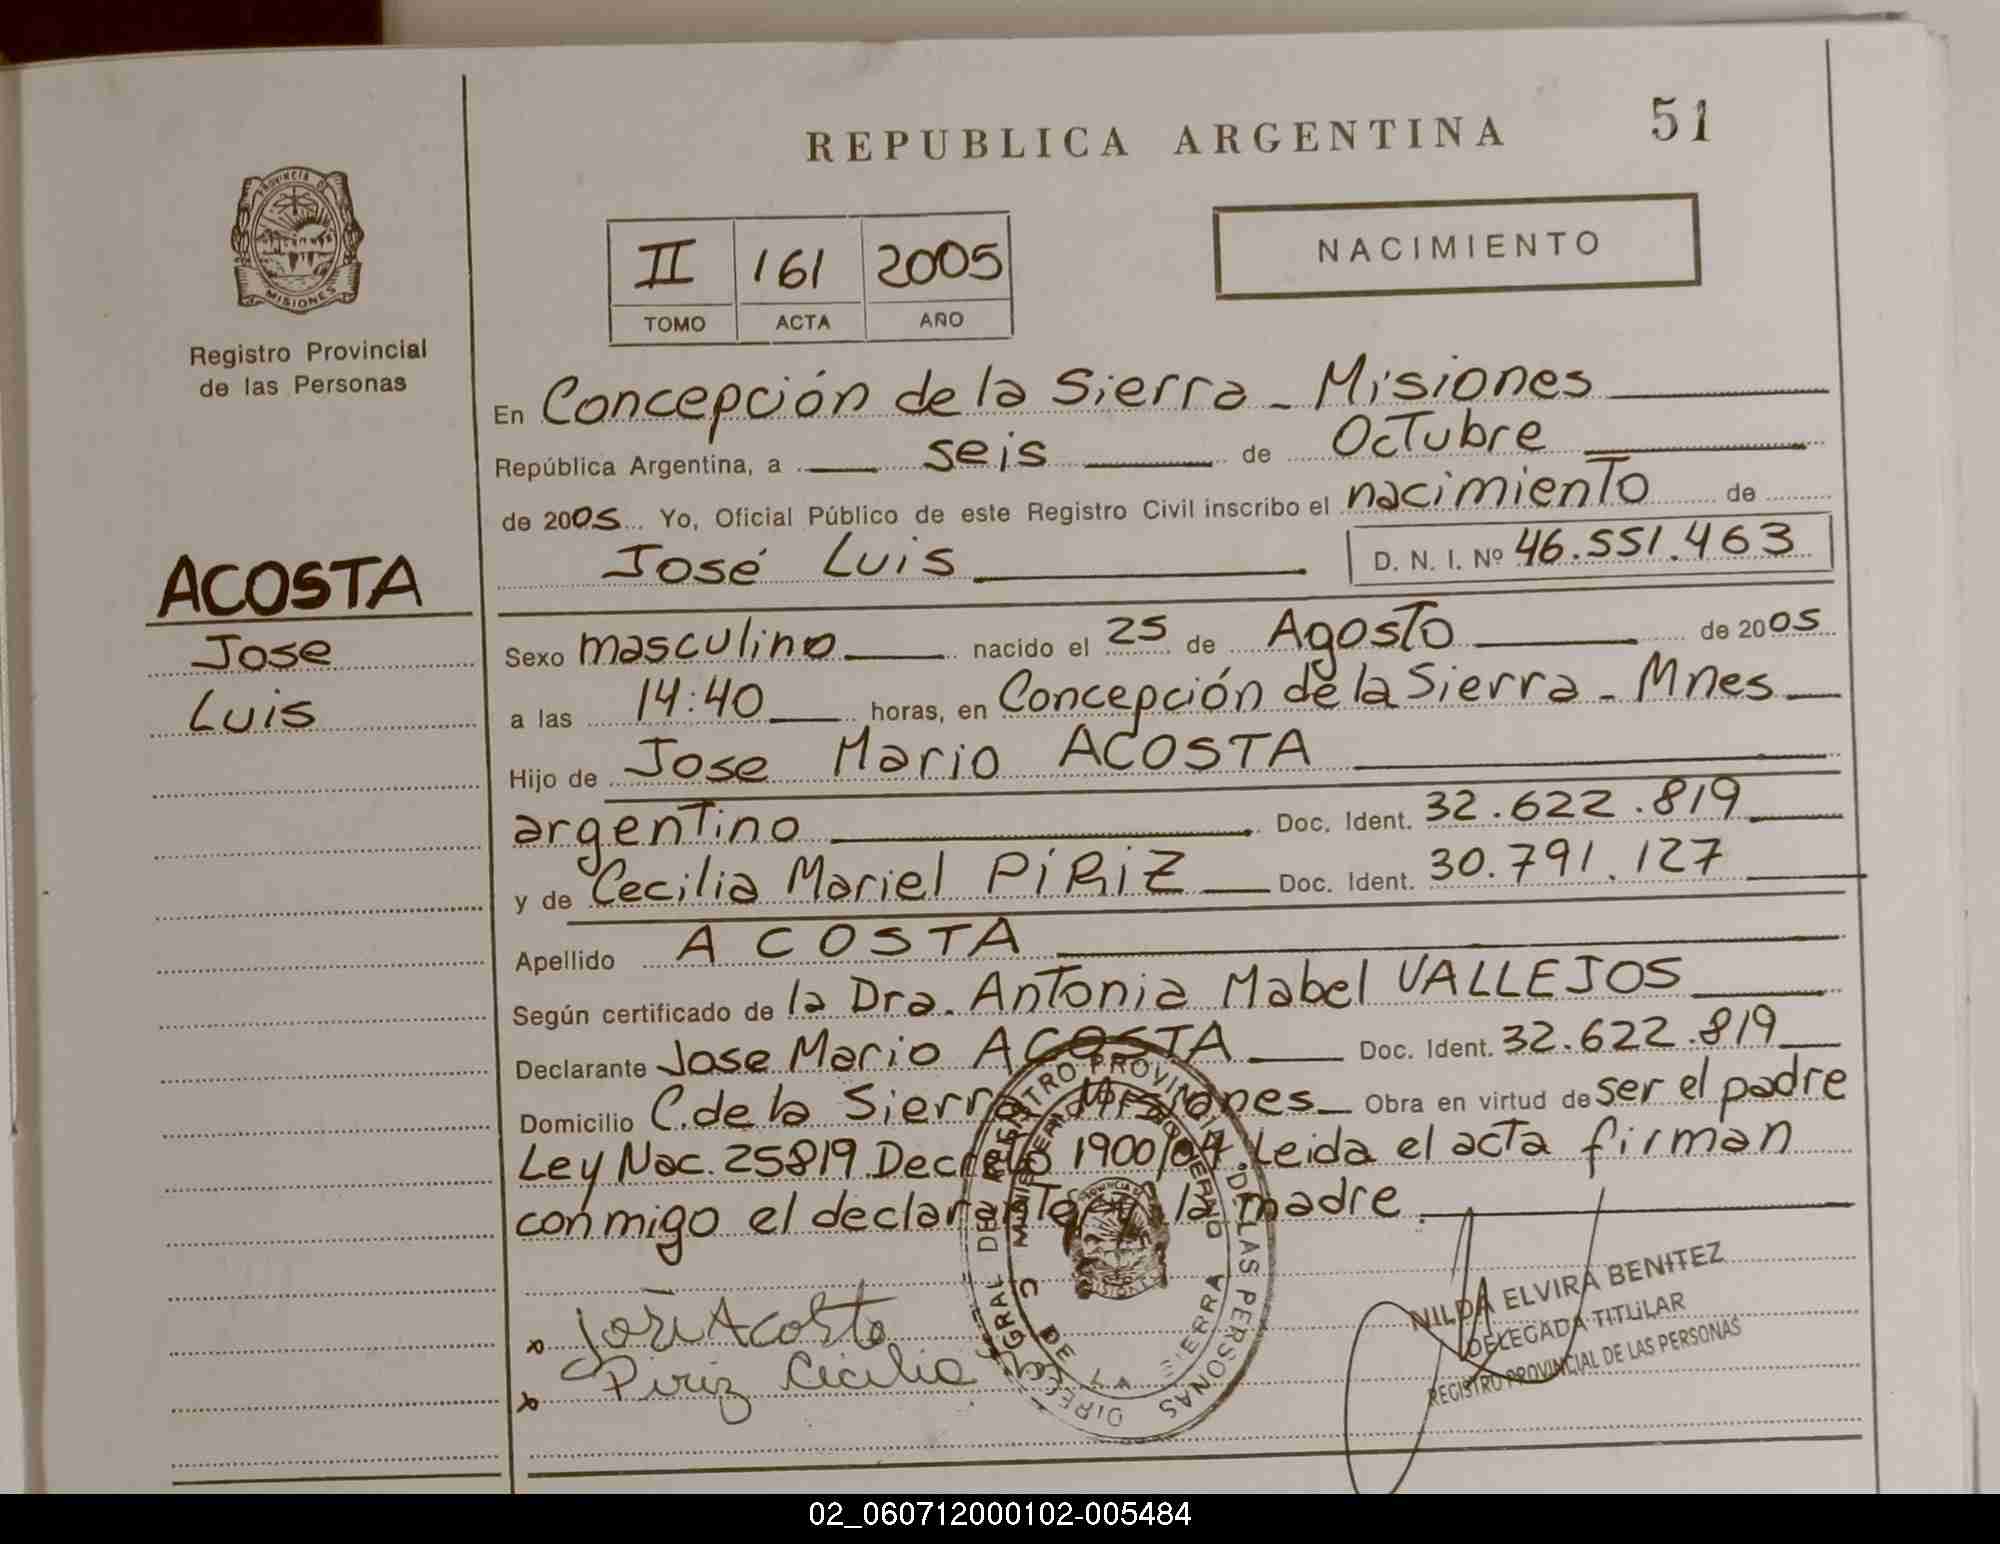 REPUBLICA ARGENTINA
51
PROVINCIA DE
MISIONES
Registro Provincial
de las Personas
II 161 2005
TOMO ACTA AÑO
NACIMIENTO
En Concepción de la Sierra - Misiones
República Argentina, a seis de Octubre
de 2005 Yo, Oficial Público de este Registro Civil inscribo el nacimiento de
José Luis D. N. I. Nº 46.551.463
ACOSTA
Jose
Luis
Sexo masculino nacido el 25 de Agosto de 2005
a las 14:40 horas, en Concepción de la Sierra - Mnes
Hijo de Jose Mario ACOSTA
argentino Doc. Ident. 32.622.819
y de Cecilia Mariel PiRiZ Doc. Ident. 30.791.127
Apellido ACOSTA
Según certificado de la Dra. Antonia Mabel VALLEJOS
Declarante Jose Mario ACOSTA Doc. Ident. 32.622.819
Domicilio C. de la Sierra Misiones Obra en virtud de ser el padre
Ley Nac. 25819 Decreto 1900/04. Leida el acta firman
conmigo el declarante y la madre.
José Acosta
Piriz Cicilia
REGISTRO PROVINCIAL DE LAS PERSONAS
SIERRA
NILDA ELVIRA BENITEZ
DELEGADA TITULAR
REGISTRO PROVINCIAL DE LAS PERSONAS
02_060712000102-005484